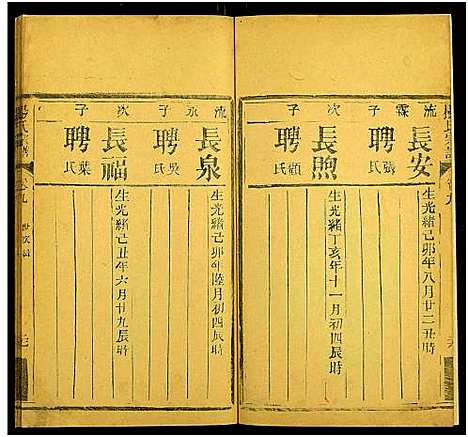 流霖子
長安
聘張氏
生光緒己卯年八月廿二丑時
次子
長煦
聘顧氏
生光緒丁亥年十一月初四辰時
流永子
長泉
聘吳氏
生光緒己卯年陸月初四辰時
次子
長福
聘葉氏
生光緒己丑年六月廿九辰時
卷九